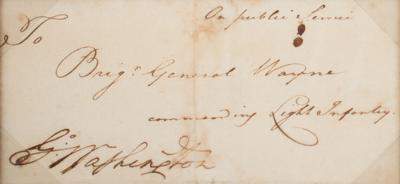 On public Service
To
Brigr. General Wayne
commanding Light Infantry.
Go: Washington